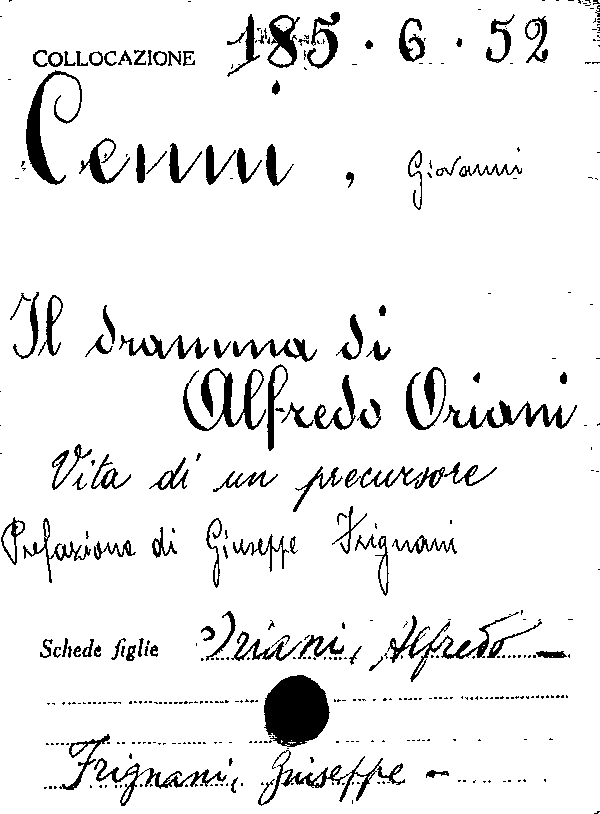 COLLOCAZIONE 185 . 6 . 52
Cenni, Giovanni
Il dramma di
Alfredo Oriani
Vita di un precursore
Prefazione di Giuseppe Frignani
Schede figlie Oriani, Alfredo —
Frignani, Giuseppe —